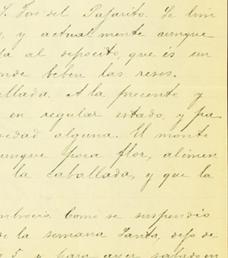 S. José del Pajarito. Se lim
, y actualmente aunque
da al deposito, que es un
onde beben las reses.
allada. A la presente y
en regular estado, y pa
edad alguna. El monte
aunque poca flor, alimen
la caballada, y que la
ambrocia Como se suspendió
de la semana Santa, dejo de
5 y para ayer sabado en